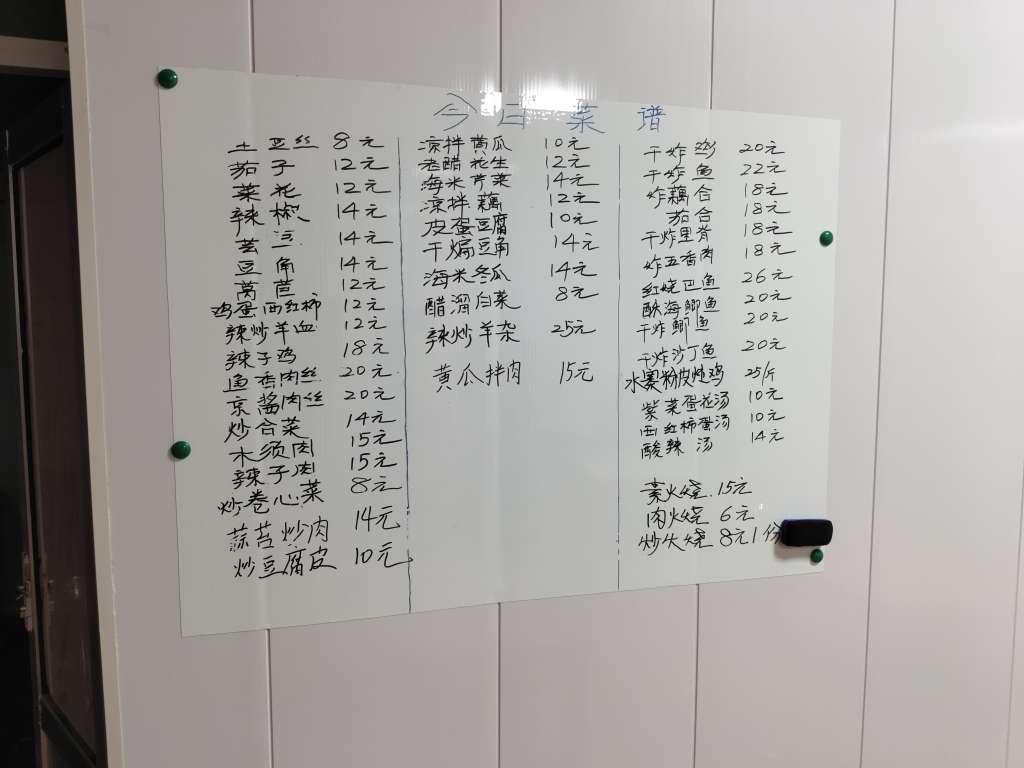 今日菜谱
土豆丝 8元
茄子 12元
菜花 12元
辣椒 14元
芸豆 14元
豆角 14元
莴苣 12元
鸡蛋西红柿 12元
辣炒羊血 12元
辣子鸡 18元
鱼香肉丝 20元
京酱肉丝 20元
炒合菜 14元
木须肉 15元
辣子肉 15元
炒卷心菜 8元
蒜苔炒肉 14元
炒豆腐皮 10元
凉拌黄瓜 10元
老醋花生 12元
海米芹菜 14元
凉拌藕 12元
皮蛋豆腐 10元
干煸豆角 14元
海米冬瓜 14元
醋溜白菜 8元
辣炒羊杂 25元
黄瓜拌肉 15元
干炸鸡 20元
干炸鱼 22元
炸藕合 18元
茄合 18元
干炸里脊 18元
炸五香肉 18元
红烧巴鱼 26元
酥海鲫鱼 20元
干炸鲫鱼 20元
干炸沙丁鱼 20元
水煮粉皮炖鸡 25/斤
紫菜蛋花汤 10元
西红柿蛋汤 10元
酸辣汤 14元
素火烧.15元
肉火烧 6元
炒火烧 8元1份